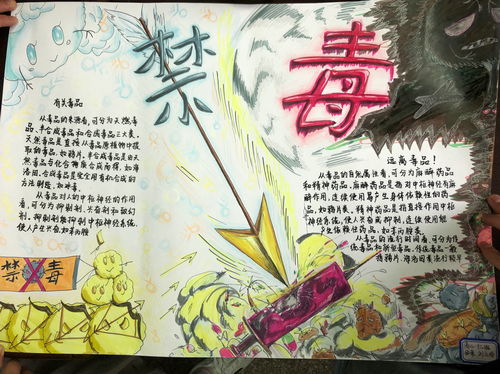 禁毒
有关毒品
从毒品的来源看，可分为天然毒
品、半合成毒品和合成毒品三大类。
天然毒品是直接从毒品原植物中提
取的毒品，如鸦片。半合成毒品是由天
然毒品与化合物合成而得，如海
洛因。合成毒品是完全用有机合成的
方法制造，如冰毒。
从毒品对人的中枢神经的作用
看，可分为抑制剂、兴奋剂和致幻
剂。抑制剂能抑制中枢神经系统，
使人产生
远离毒品！
从毒品的自然属性看，可分为麻醉药品
和精神药品。麻醉药品是指对中枢神经有麻
醉作用，连续使用易产生身体依赖性的药
品，如鸦片类。精神药品是指直接作用中枢
神经系统，使人兴奋或抑制，连续使用能
产生依赖性药品，如
从毒品的流行时间看，可分为传
统毒品和新型毒品。传统毒品一般
指鸦片、海洛因等流行较早
禁毒